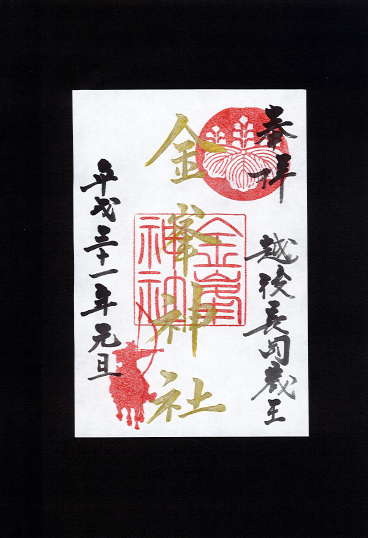 奉拝
越後長岡蔵王
金峯神社
金峯
神社
平成三十一年元旦